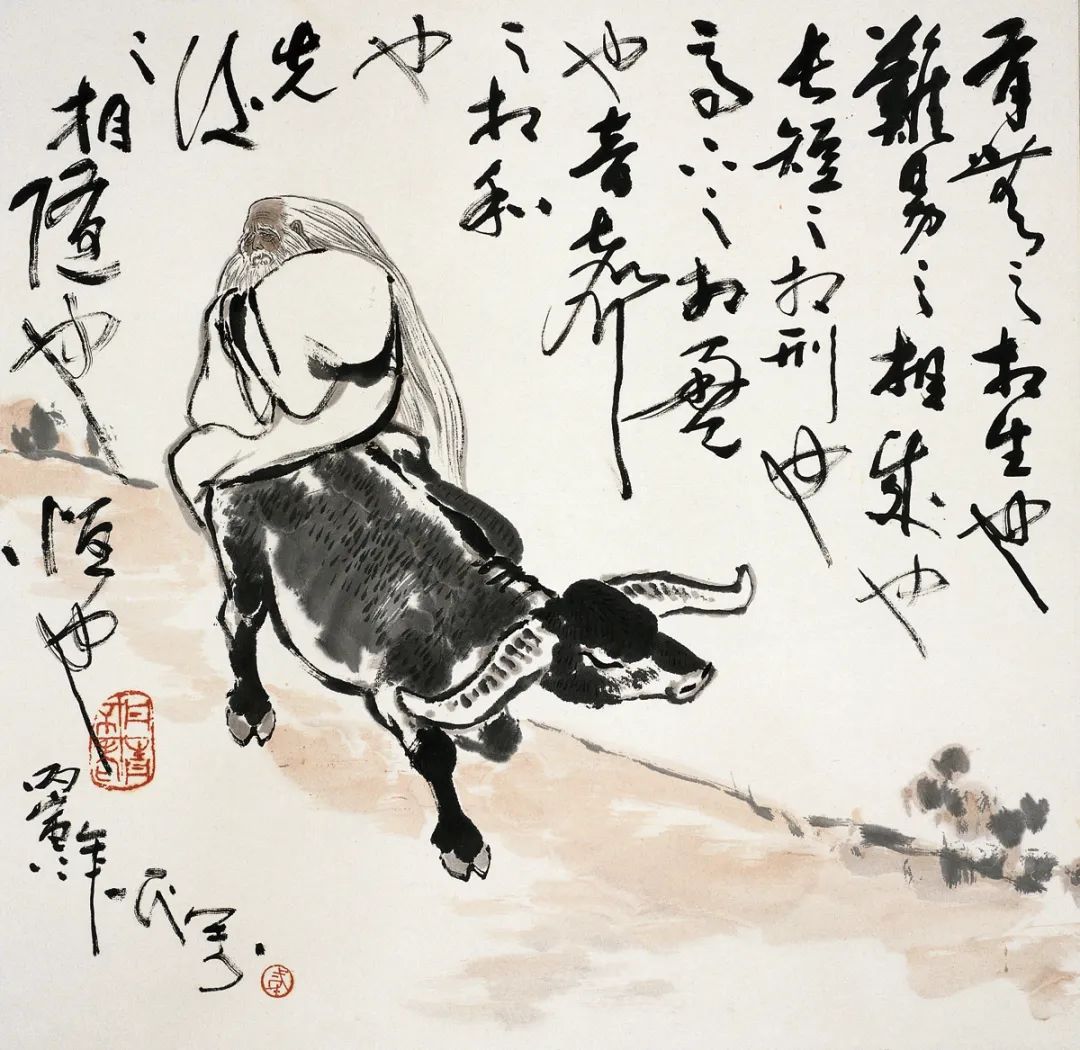 有無之相生也
難易之相成也
長短之相刑也
高下之相盈
也音聲
之相和
也
先
後
之
相隨也
恒也
丙寅年